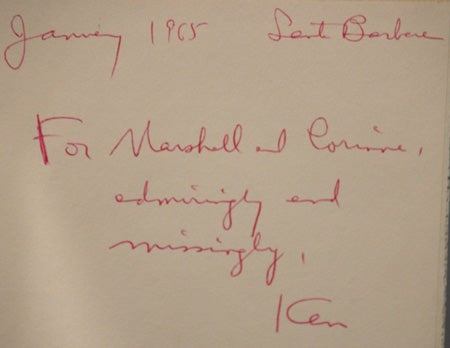 January 1965 Santa Barbara
For Marshall and Corinne,
admiringly and
missingly,
Ken